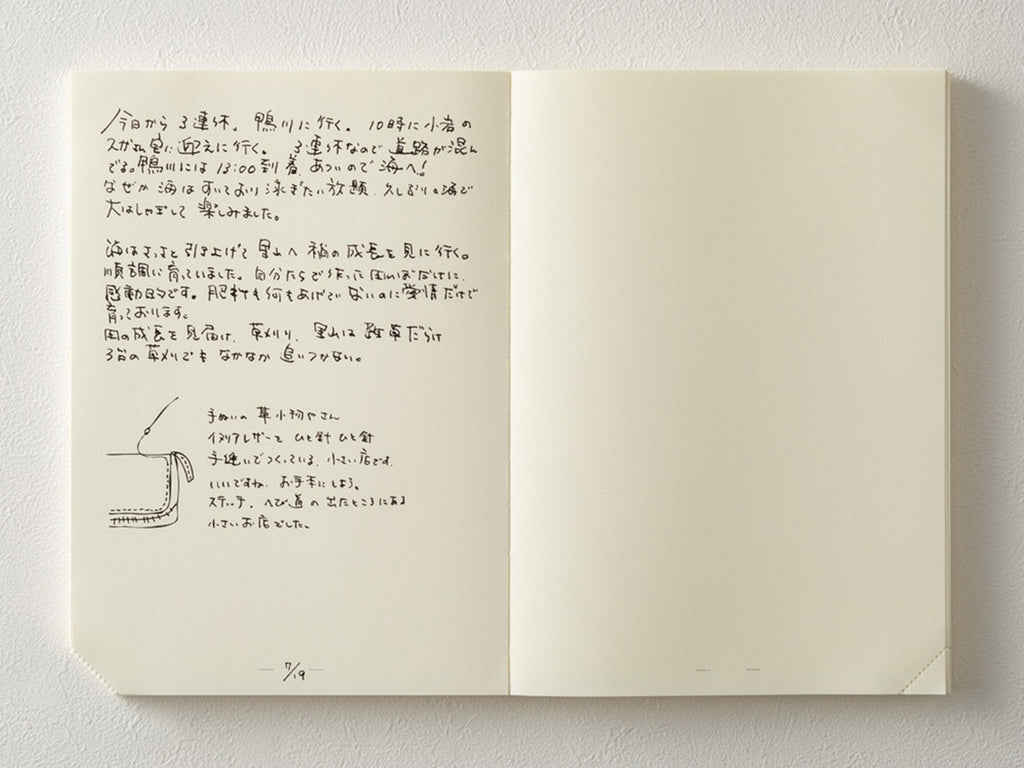 今日から3連休。鴨川に行く。10時に小岩の
迎えに行く。3連休なので道路が混ん
でる。鴨川には13:00到着、あついので海へ!
なぜか海はすいており泳ぎたい放題、久しぶりの海で
大はしゃぎして楽しみました。
海はさっさと引き上げて里山へ稲の成長を見に行く。
順調に育っていました。自分たちで作った田んぼだけに、
感動的です。肥料も何もあげていないのに愛情だけで
育っております。
田の成長を見届け、草刈り、里山は雑草だらけ
3台の草刈でもなかなか追いつかない。
手ぬいの革小物やさん
イタリアレザーを ひと針 ひと針
手縫いでつくっている、小さい店です。
いいですね、お手本にしよう。
ステッチ、へび道の出たところにある
小さいお店でした。
7/19